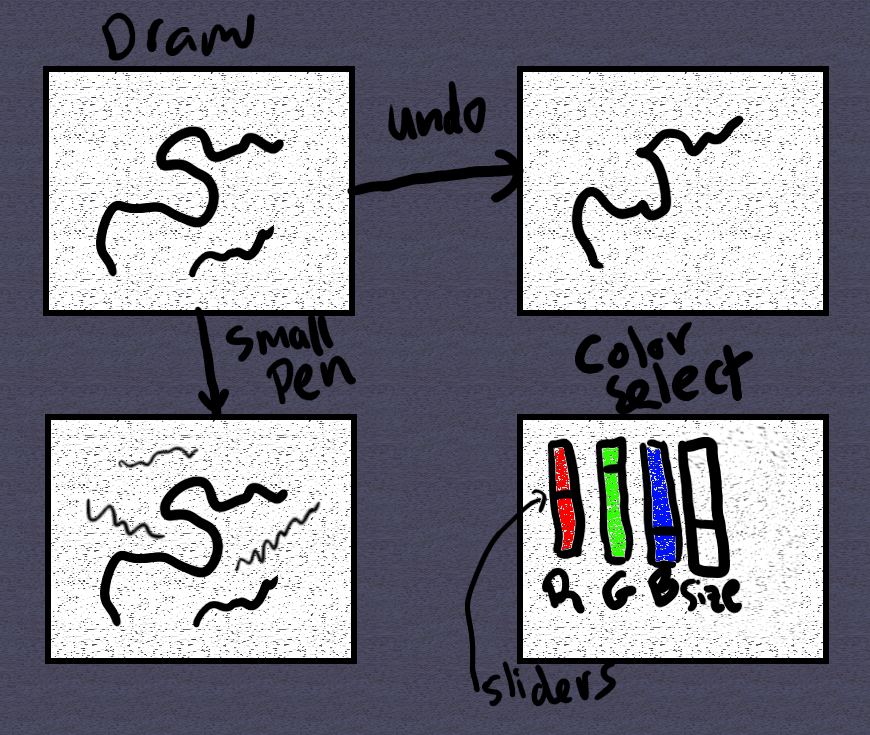 Draw
undo
small
pen
Color
select
R G B size
sliders